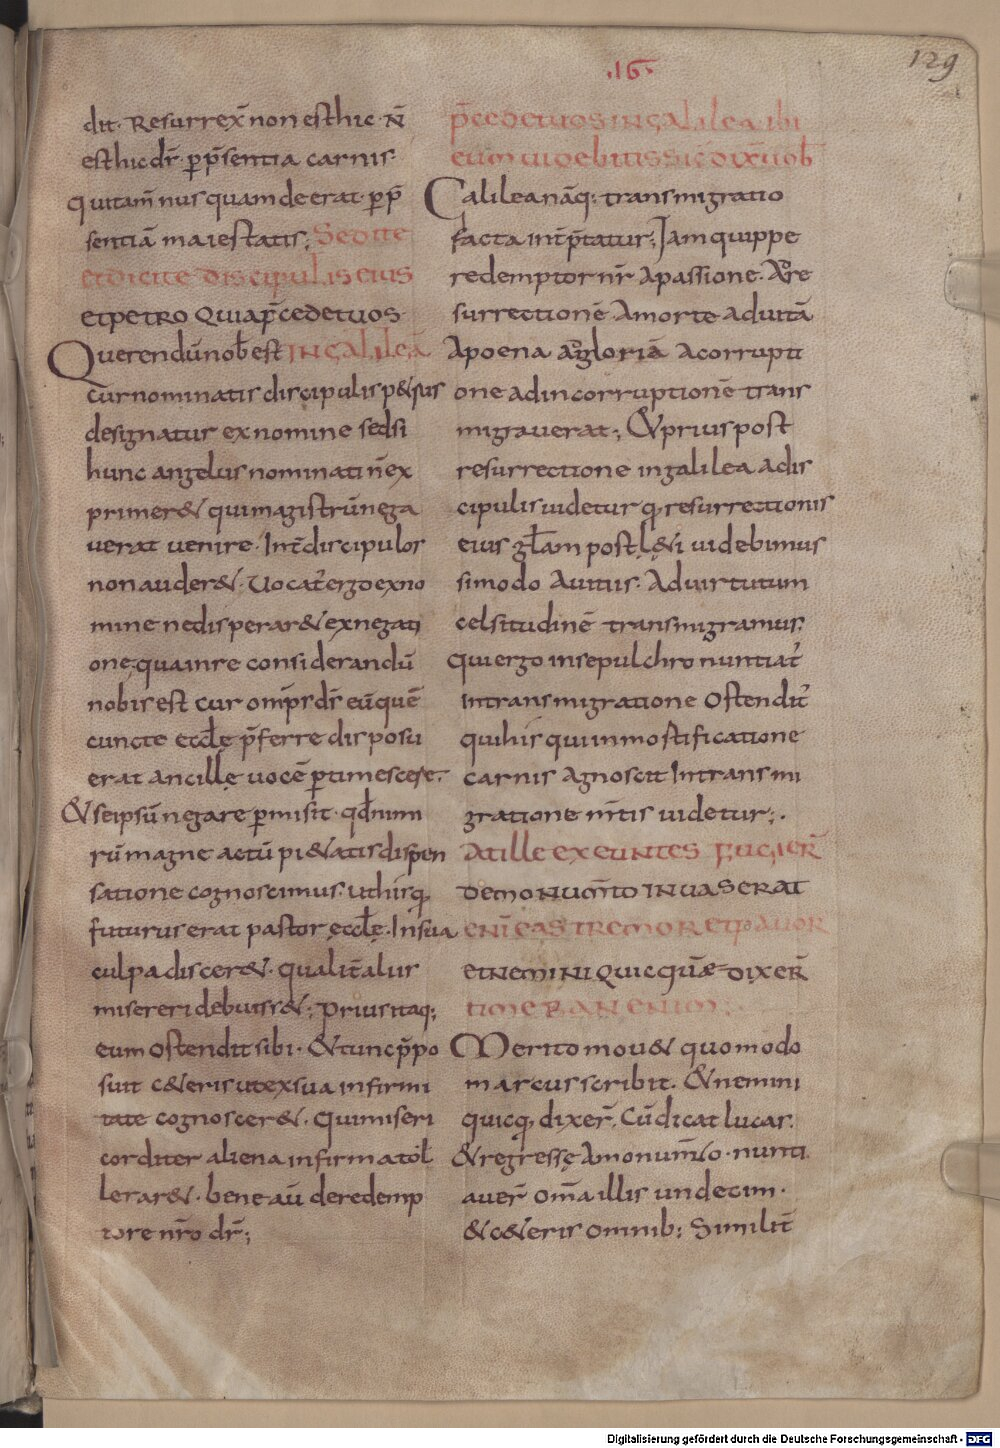 129
.16.
dit. Resurrex̄ non est hic. N̄
est hic dr̄. ꝑ p̄sentia carnis.
qui tam̄ nusquam deerat. ꝑ p̄
sentiā maiestatis; Sed ite
et dicite discipulis eius
et petro quia p̄cedet uos
Querendū nob̄ est in galileā
cur nominatis discipulis p&rus
designatur ex nomine sed si
hunc angelus nominatī n̄ ex
primer& qui magistrū nega
uerat uenire. Int̄ discipulos
non auder&. Uocat̄ ergo ex no
mine ne disperar& ex negati
one; qua in re considerandū
nobis est cur omp̄s d̄s eū quē
cuncte eccłę p̄ferre disposu
erat ancillę uocē ꝑtimescere.
& seipsū negare ꝑmisit. qđ nimi
rū magne actū pi&atis dispen
satione cognoscimus. ut his q,
futurus erat pastor ęccłę. In sua
culpa discer&. qualit̄ alus
misereri debuiss&; Prius itaq;
eum ostendit sibi. & tunc p̄po
suit c&eris ut ex sua infirmi
tate cognoscer&. Qui miseri
corditer aliena infirma tol
lerar&. bene aū de redemp
tore nr̄o dr̄;
p̄cedet uos in galilea ibi
eum uidebitis sic̄ dix̄ uob̄
Galilea nāq; transmigratio
facta int̄p̄tatur; Iam quippe
redemptor nr̄ a passione. Ad re
surrectionē A morte ad uitā
A poena ad gloriā a corrupti
one ad incorruptionē trans
migrauerat; & prius post
resurrectione in galilea a dis
cipulis uidetur q, resurrectionis
eius gł̄am post l&i uidebimus
si modo a uitiis. Ad uirtutum
celsitudinē transmigramus.
qui ergo in sepulchro nuntiat̄
in transmigratione ostendit̄
qui his qui in mostificatione
carnis agnoscit In transmi
gratione m̄tis uidetur;.
At ille exeuntes fugier̄
de monum̄to inuaserat
eni eas tremor et pauor
et nemini quicquā dixer̄
timebant enim;
Merito mou& quomodo
marcus scribit. & nemini
quicq, dixer̄. Cū dicat lucas.
& regressę a monum̄to. nunti
auer̄ om̄a illis undecim.
& c&eris omnib; Similit̄
Digitalisierung gefördert durch die Deutsche Forschungsgemeinschaft - DFG